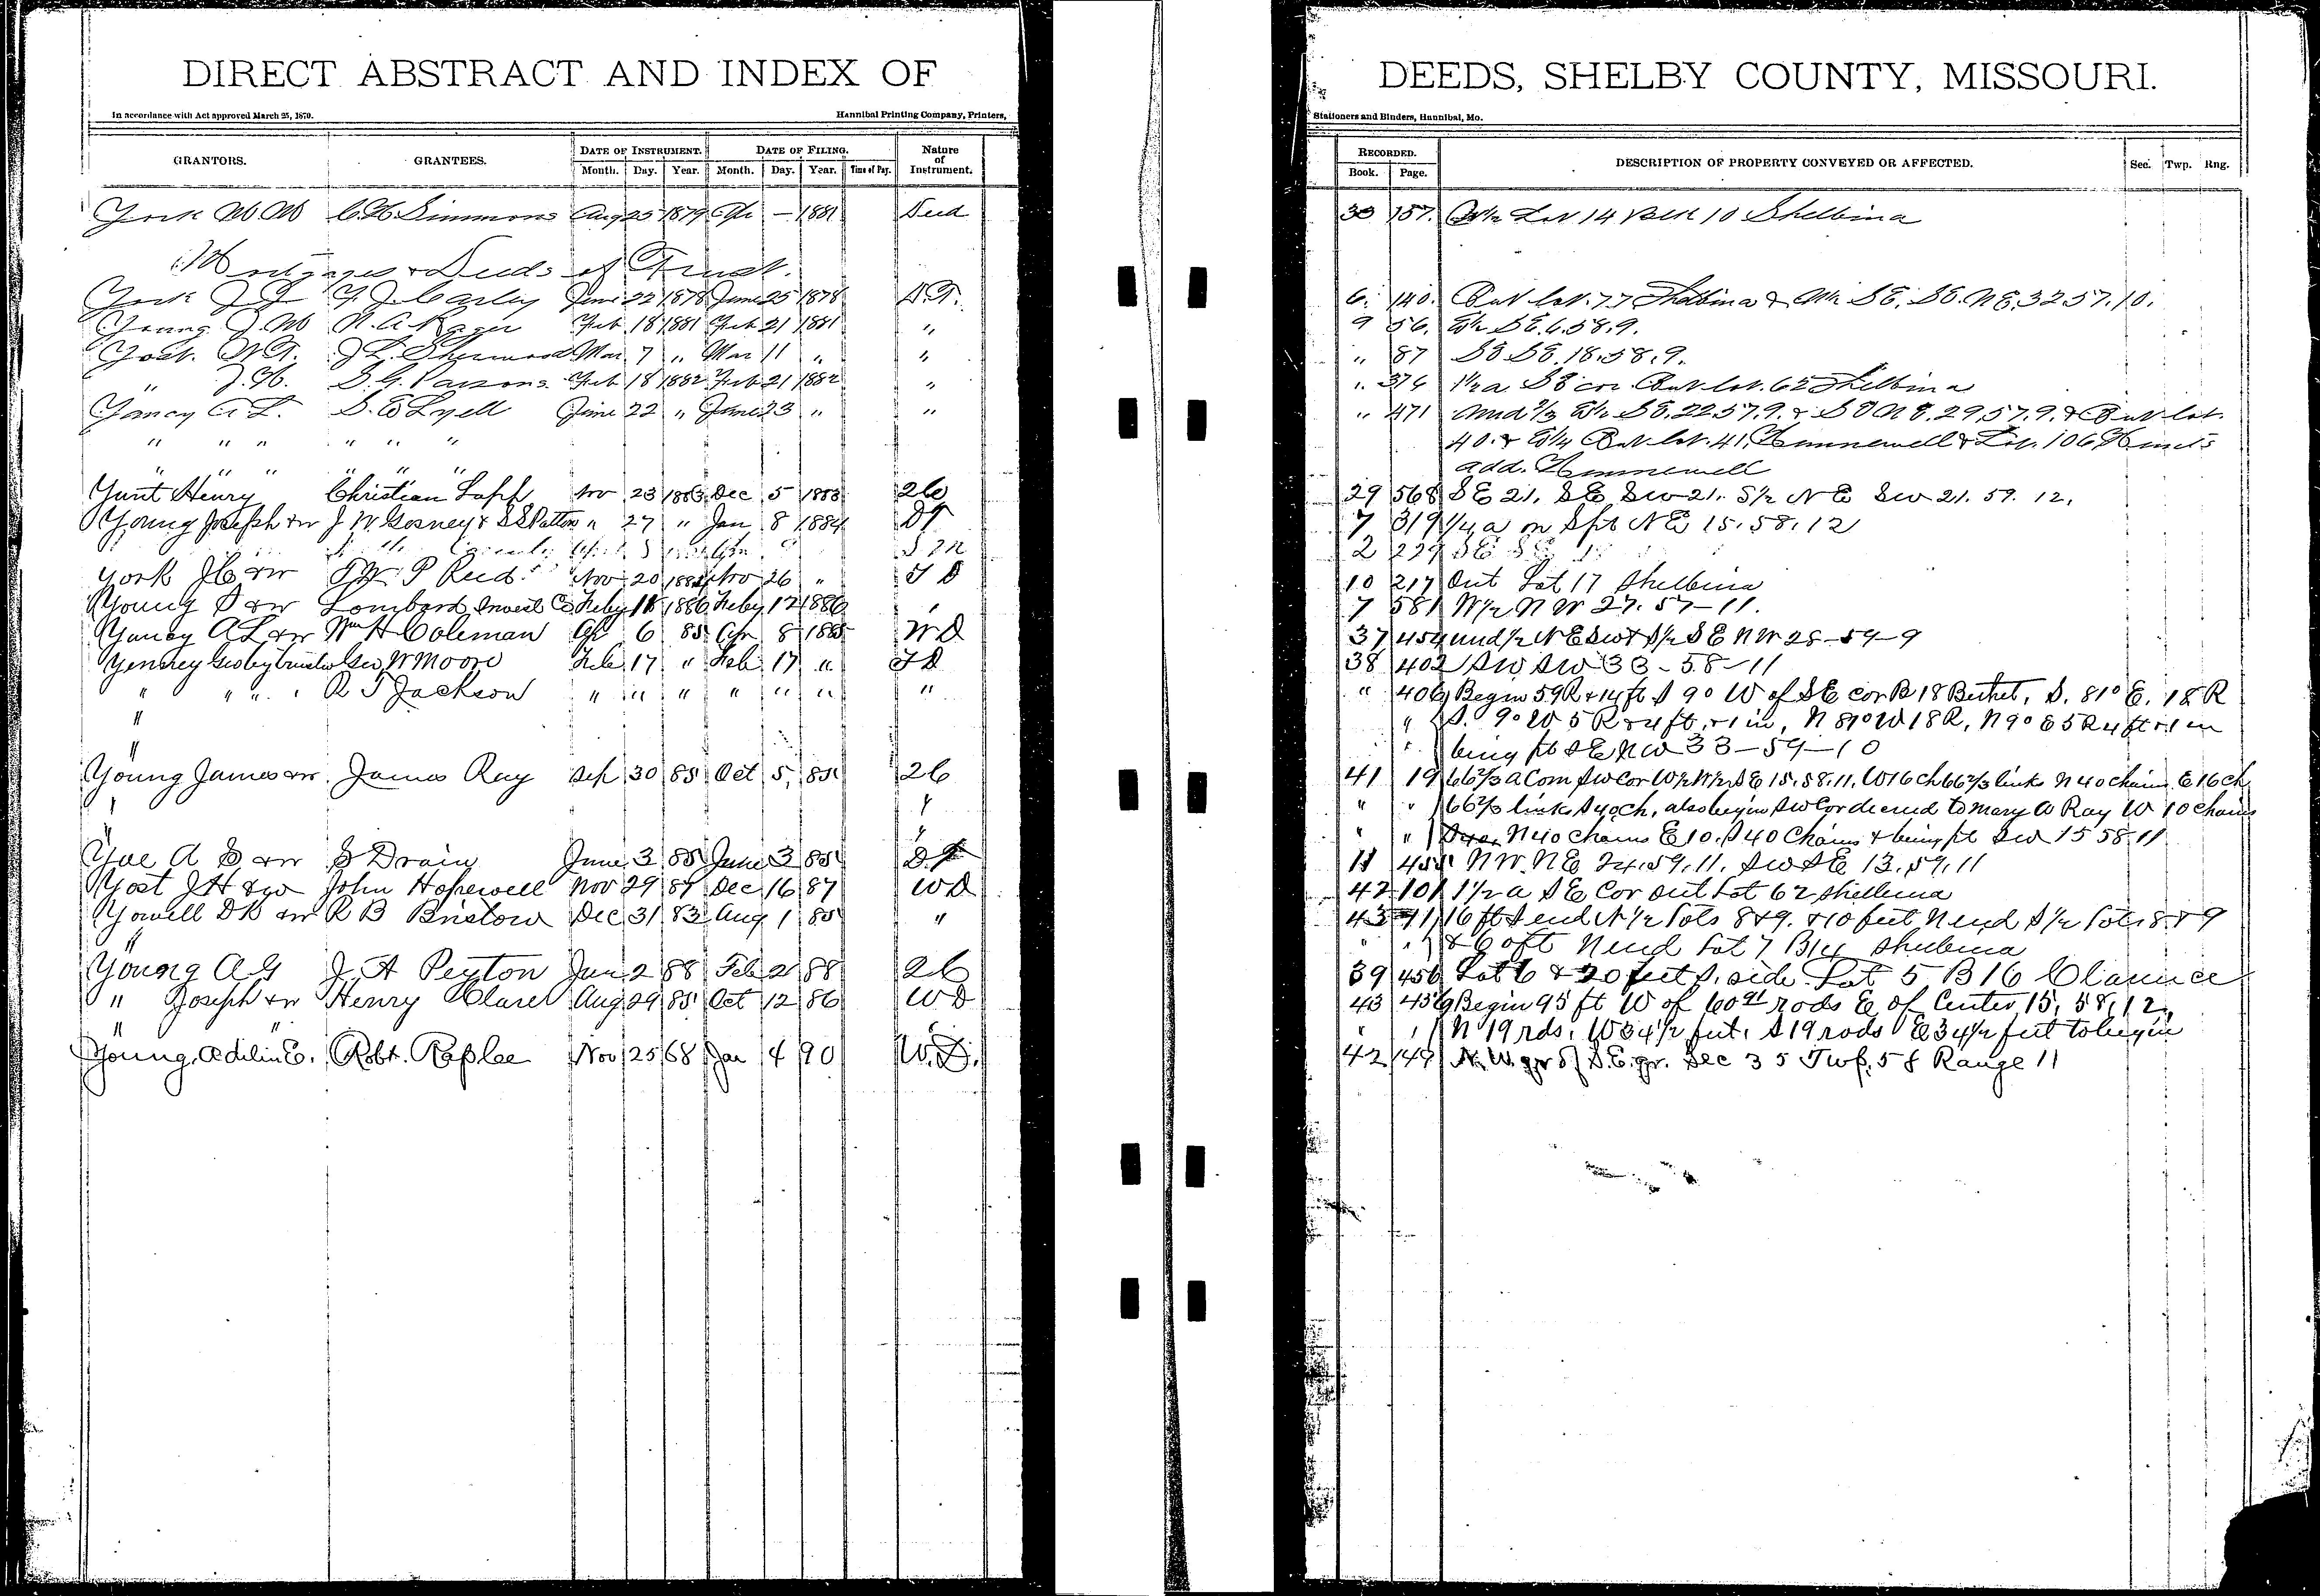 DIRECT ABSTRACT AND INDEX OF DEEDS, SHELBY COUNTY, MISSOURI.
In accordance with Act approved March 25, 1870. Hannibal Printing Company, Printers, Stationers and Binders, Hannibal, Mo.
GRANTORS. GRANTEES. DATE OF INSTRUMENT. DATE OF FILING. Nature of Instrument. RECORDED. DESCRIPTION OF PROPERTY CONVEYED OR AFFECTED. Sec. Twp. Rng.
Month. Day. Year. Month. Day. Year. Time of Day. Book. Page.
York W W C. H. Simmons Aug 25 1879 Apr — 1881 Deed 30 157. Lot 14 Blk 10 Shelbina
Mortgages & Deeds of Trust.
York J June 22 1878 June 25 1878 D.T. 6. 140. Out lot. 77 Shelbina & SE. SE. NE. 32 57. 10.
Young J. W N. A. Rager Feb. 18 1881 Feb 21 1881 " 9 56. E½ SE. 6. 58. 9.
Yost. J. L. Sherwood Mar. 7 " Mar 11 " " " 87 SE SE. 18. 58. 9.
" J. H. S. G. Parsons. Feb 18 1882 Feb 21 1882 " " 376 1½ a SE cor. Out lot. 62 Shelbina
Yancy A. L. S. E Lyell June 22 " June 23 " " " 471 Und ⅔ E½ SE. 22 57. 9. & 29. 57. 9. & Out lot.
" " " " " " 40. & Out lot. 41, Hunnewell & Lot. 106
" " " " " " add. Hunnewell
Yunt Henry Christian Lapp Nov 23 1883 Dec 5 1883 2C 29 568 SE 21, SE SW 21. S½ NE SW 21. 59. 12.
Young Joseph & w J W Gosney & S S Patton " 27 " Jan 8 1884 DT 7 319 ¼ a on Spt NE 15. 58. 12
2 229 SE
York J C & w T W P Reed. Nov 20 Nov 26 " T D 10 217 Out Lot 17 Shelbina
Young S & w Lombard Invest Co Feby 1886 Feby 12 1886 " 7 581 W½ NW 27. 57–11.
Yancy A L & w Wm H Coleman Apr 6 85 Apr 8 1885 W D 37 454 und ½ NE SW & S½ SE NW 28–59–9
Geo W Moore Feb 17 " Feb 17 " T D 38 402 SW SW 33–58–11
" " " R T Jackson " " " " " " " " 406 Begin 59 R & 14 ft S 9° W of SE cor B 18 Bethel, S. 81° E. 18 R
" " S. 9° W 5 R & 4 ft, & 1 in, N 81° W 18 R, N 9° E 5 R 4 ft & 1 in
" " being pt SE NW 33–59–10
Young James & w. James Ray Sep 30 85 Oct 5, 85 2C 41 19 66⅔ a Com SW Cor W½ W½ SE 15. 58. 11, W 16 Ch 66⅔ links N 40 chains E 16 ch
" " " " 66⅔ links S 40 ch, also begin SW Cor deeded to Mary A Ray W 10 chains
" " " " N 40 chains E 10. S 40 chains & being pt SW 15 58 11
Yoe A S & w S Drain June 3 85 June 3 85 DT 11 455 NW. NE 24. 59. 11. SW SE 13. 59. 11
Yost J H & w John Hopewell Nov 29 87 Dec 16 87 WD 42 101 1½ a SE Cor Out Lot 62 Shelbina
Yowell D K & w R B Bristow Dec 31 83 Aug 1 85 " 43 71 16 ft S end N½ lots 8 & 9. & 10 feet N end S½ lots 8 & 9
" " " & 6 oft N end Lot 7 B 14 Shelbina
Young A G J. A Peyton Jan 2 88 Feb 2 88 2C 39 456 Lot 6 & 20 feet S. side Lot 5 B 16 Clarence
" Joseph & w Henry Clare Aug 29 85 Oct 12 86 WD 43 456 Begin 95 ft W of 60 rods E of Center 15, 58, 12,
" " " " N 19 rds, W 34½ feet, S 19 rods E 34½ feet to begin
Young, Adelin E. Robt. Raplee Nov 25 68 Jan 4 90 W. D. 42 149 N. W. qr of S. E. qr. Sec 35 Twp. 58 Range 11